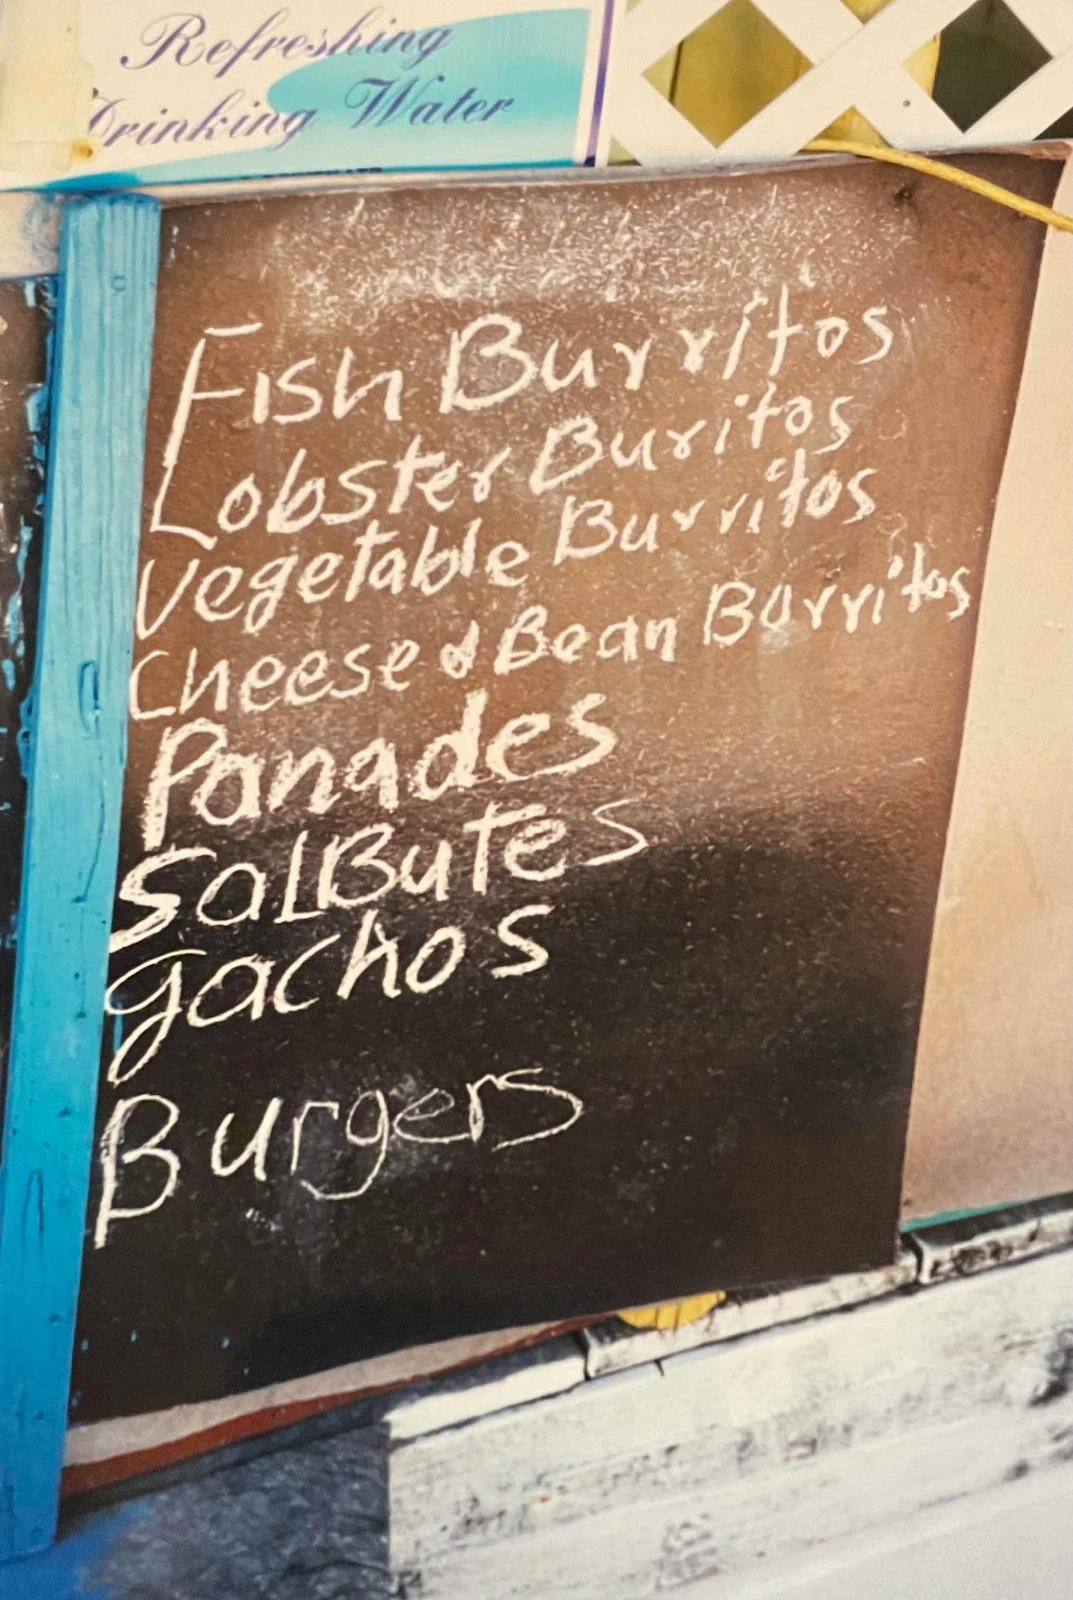 Refreshing
Drinking Water
Fish Burritos
Lobster Buritos
Vegetable Burritos
Cheese & Bean Borritos
Panades
SalButes
gachos
Burgers